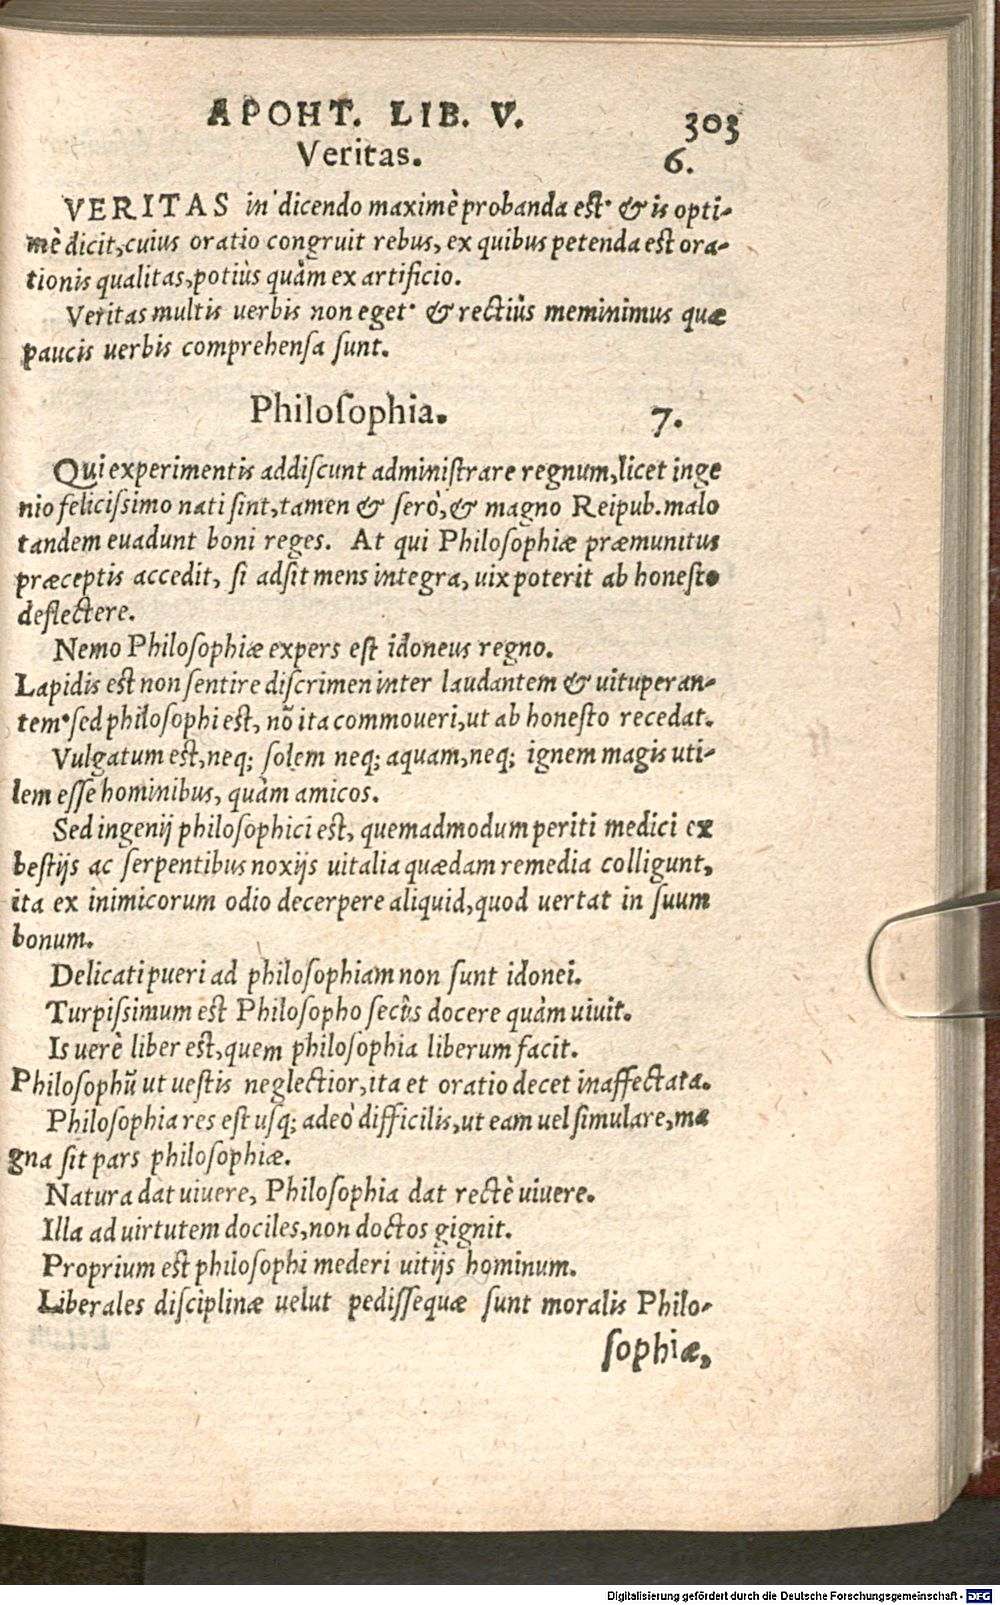 APOHT. LIB. V. 303
Veritas. 6.
VERITAS in dicendo maximè probanda est· & is opti-
mè dicit, cuius oratio congruit rebus, ex quibus petenda est ora-
tionis qualitas, potiùs quàm ex artificio.
Veritas multis uerbis non eget· & rectiùs meminimus quæ
paucis uerbis comprehensa sunt.
Philosophia. 7.
Qui experimentis addiscunt administrare regnum, licet inge
nio felicissimo nati sint, tamen & serò, & magno Reipub. malo
tandem euadunt boni reges. At qui Philosophiæ præmunitus
præceptis accedit, si adsit mens integra, uix poterit ab honesto
deflectere.
Nemo Philosophiæ expers est idoneus regno.
Lapidis est non sentire discrimen inter laudantem & uituperan-
tem· sed philosophi est, nõ ita commoueri, ut ab honesto recedat.
Vulgatum est, neq; solem neq; aquam, neq; ignem magis uti-
lem esse hominibus, quàm amicos.
Sed ingenij philosophici est, quemadmodum periti medici ex
bestijs ac serpentibus noxijs uitalia quædam remedia colligunt,
ita ex inimicorum odio decerpere aliquid, quod uertat in suum
bonum.
Delicati pueri ad philosophiam non sunt idonei.
Turpissimum est Philosopho secùs docere quàm uiuit.
Is uerè liber est, quem philosophia liberum facit.
Philosophũ ut uestis neglectior, ita et oratio decet inaffectata.
Philosophia res est usq; adeò difficilis, ut eam uel simulare, ma
gna sit pars philosophiæ.
Natura dat uiuere, Philosophia dat rectè uiuere.
Illa ad uirtutem dociles, non doctos gignit.
Proprium est philosophi mederi uitijs hominum.
Liberales disciplinæ uelut pedissequæ sunt moralis Philo-
sophiæ,
Digitalisierung gefördert durch die Deutsche Forschungsgemeinschaft - DFG